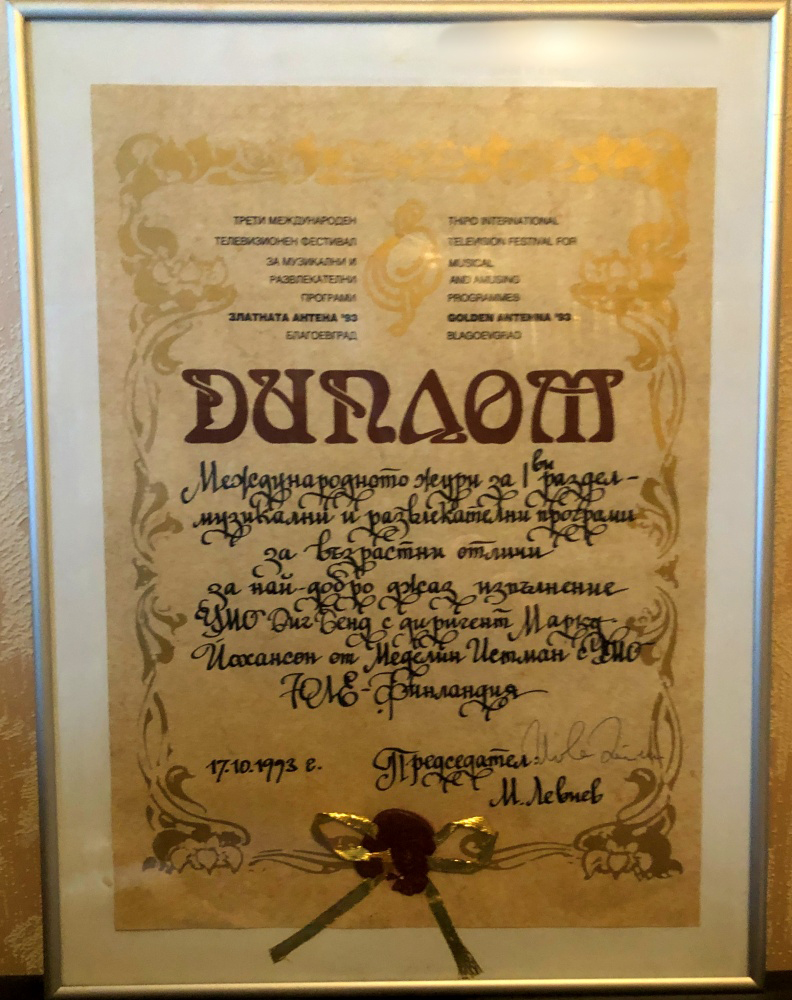 ТРЕТИ МЕЖДУНАРОДЕН
ТЕЛЕВИЗИОНЕН ФЕСТИВАЛ
ЗА МУЗИКАЛНИ И
РАЗВЛЕКАТЕЛНИ
ПРОГРАМИ
ЗЛАТНАТА АНТЕНА '93
БЛАГОЕВГРАД
THIRD INTERNATIONAL
TELEVISION FESTIVAL FOR
MUSICAL
AND AMUSING
PROGRAMMES
GOLDEN ANTENNA '93
BLAGOEVGRAD
ДИПЛОМ
Международното жури за 1ви раздел-
музикални и развлекателни програми
за възрастни отличи
за най-добро джаз изпълнение
УМО Биг Бенд с диригент Марко
Йохансон от Меделин Истман с УМО
ЮЛЕ-Финландия
17.10.1993 г.
Председател:
М. Левиев